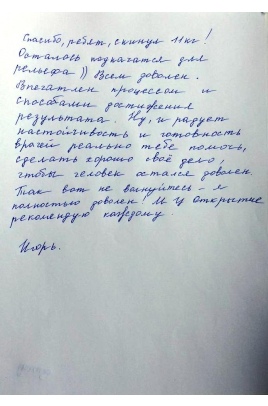 Спасибо, ребят, скинул 11 кг!
Осталось подкачатся для
рельефа)) Всем доволен.
Впечатлен процессом и
способами достижения
результата. Ну, и радует
настойчивость и готовность
врачей реально тебе помочь,
сделать хорошо своё дело,
чтобы человек остался доволен.
Так вот не волнуйтесь – я
полностью доволен! МЦ Открытие
рекомендую каждому.
Игорь.